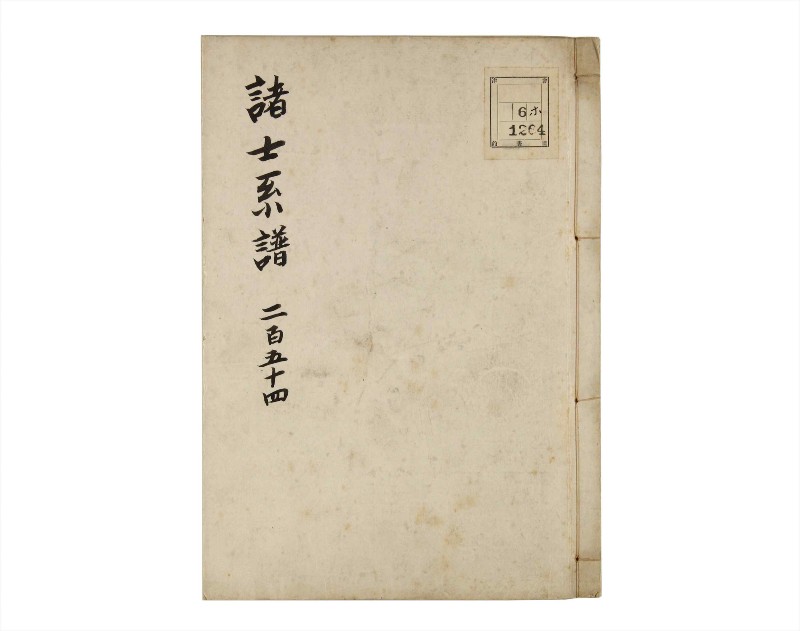 諸士系譜 二百五十四
6 ホ
1264